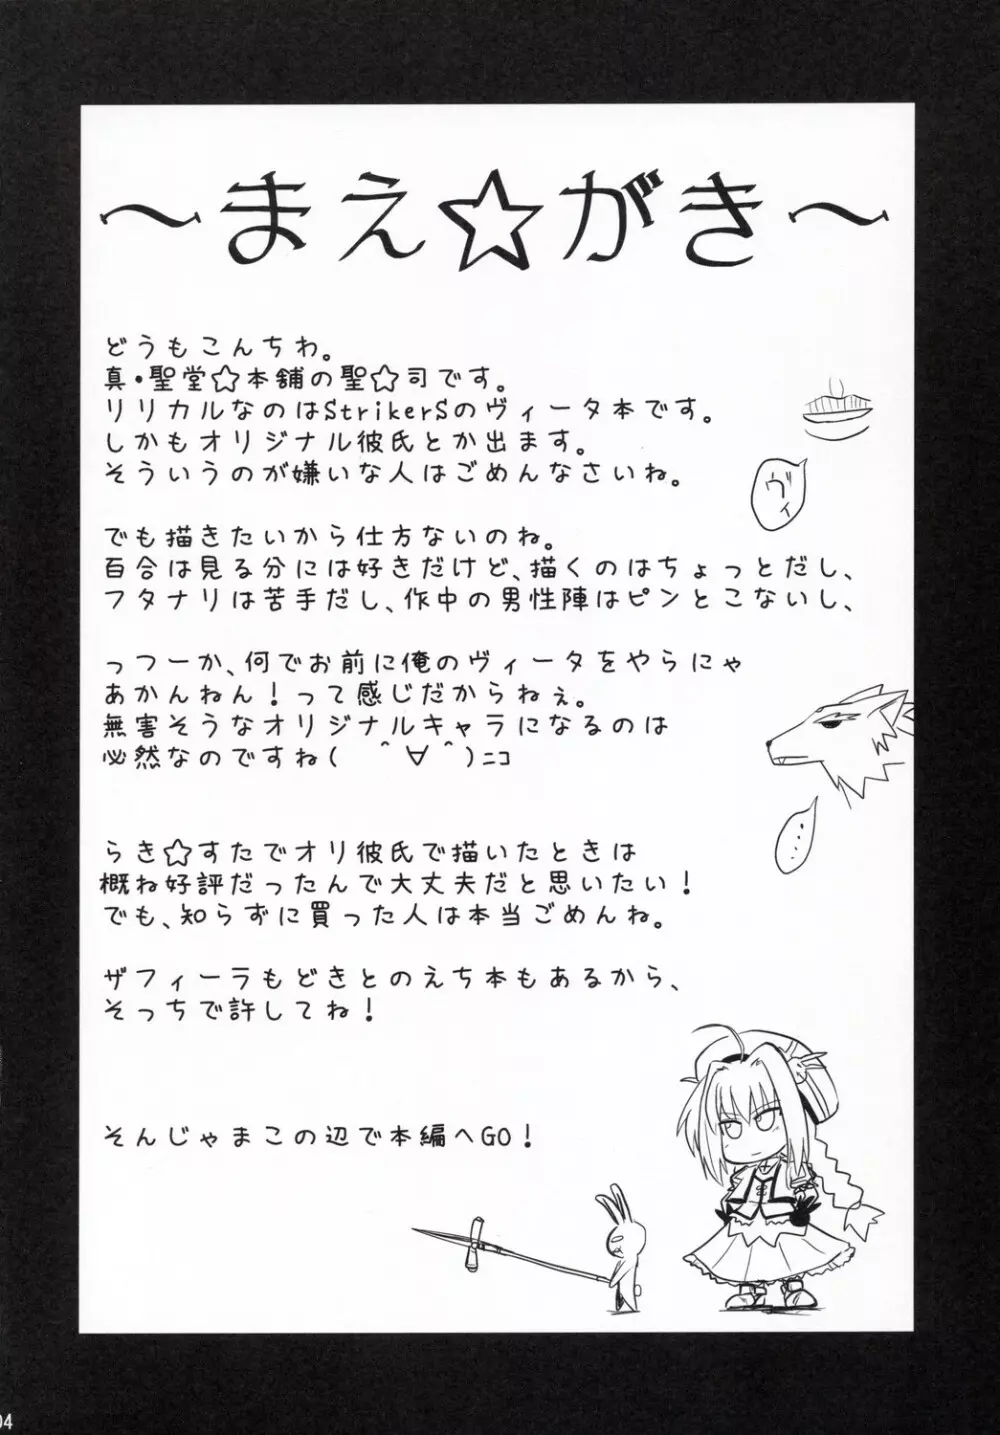 ～まえ☆がき～
どうもこんちわ。
真・聖堂☆本舗の聖☆司です。
リリカルなのはStrikerSのヴィータ本です。
しかもオリジナル彼氏とか出ます。
そういうのが嫌いな人はごめんなさいね。
ヴィ
でも描きたいから仕方ないのね。
百合は見る分には好きだけど、描くのはちょっとだし、
フタナリは苦手だし、作中の男性陣はピンとこないし、
っつーか、何でお前に俺のヴィータをやらにゃ
あかんねん！って感じだからねぇ。
無害そうなオリジナルキャラになるのは
必然なのですね(　＾∀＾)ﾆｺ
……
らき☆すたでオリ彼氏で描いたときは
概ね好評だったんで大丈夫だと思いたい！
でも、知らずに買った人は本当ごめんね。
ザフィーラもどきとのえち本もあるから、
そっちで許してね！
そんじゃまこの辺で本編へGO！
04